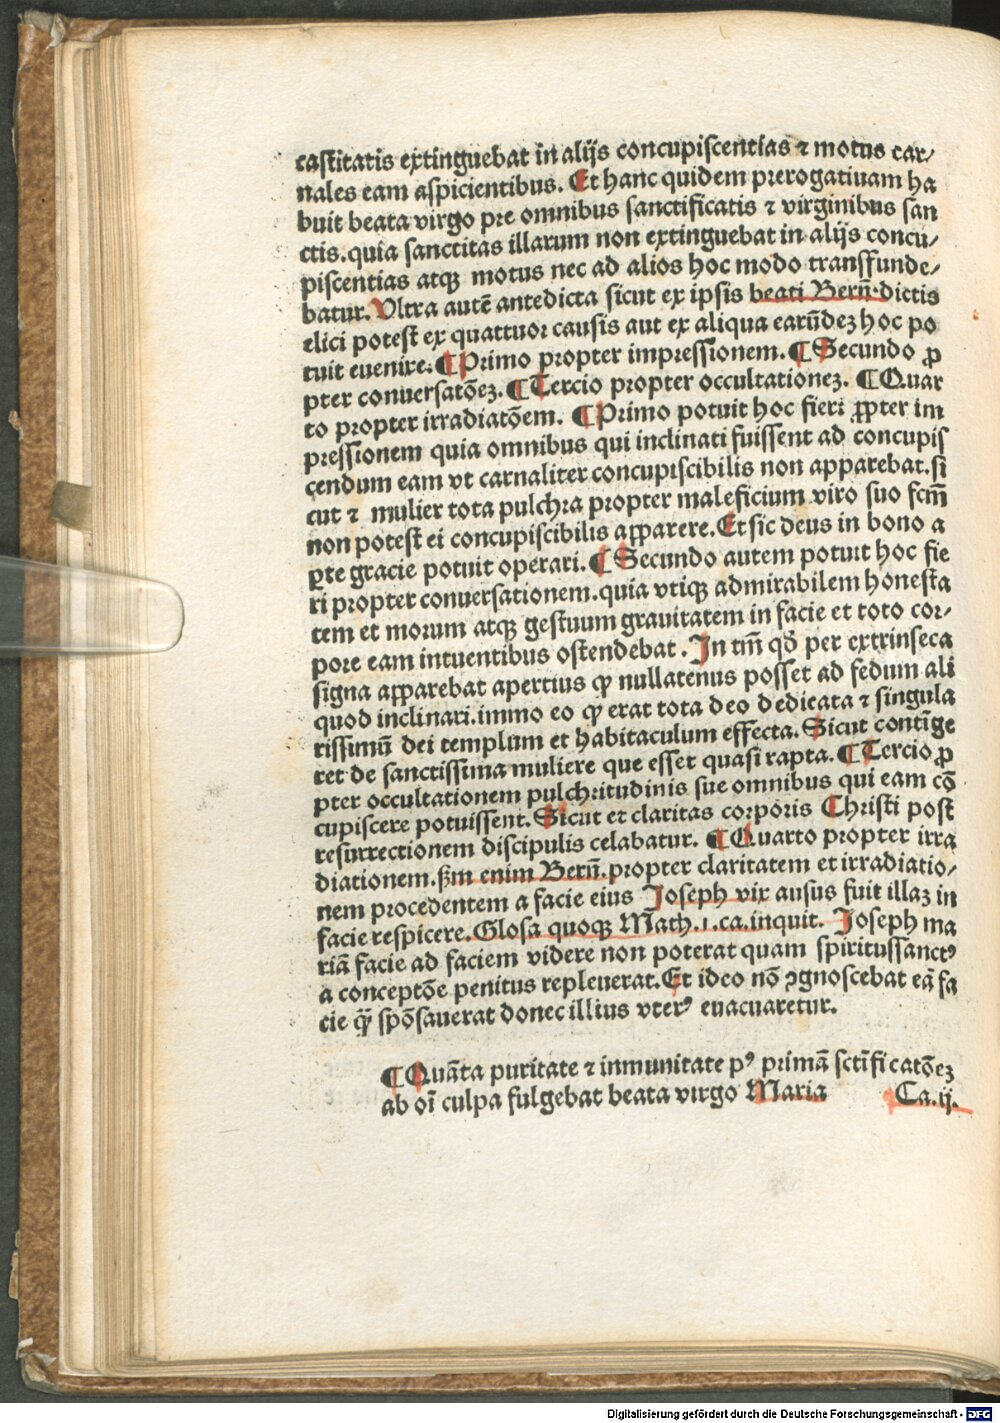 castitatis extinguebat in alijs concupiscentias ⁊ motus car⸗
nales eam aspicientibus. Et hanc quidem prerogatiuam ha
buit beata virgo pre omnibus sanctificatis ⁊ virginibus san
ctis. quia sanctitas illarum non extinguebat in alijs concu⸗
piscentias atqꝫ motus nec ad alios hoc modo transfunde⸗
batur. Vltra autē antedicta sicut ex ipsis beati Berñ. dictis
elici potest ex quattuor causis aut ex aliqua earūdeꝫ hoc po
tuit euenire. ¶ Primo propter impressionem. ¶ Secundo ꝓ
pter conuersatōeꝫ. ¶ Tercio propter occultationeꝫ. ¶ Quar
to propter irradiatōem. ¶ Primo potuit hoc fieri ꝓpter im
pressionem quia omnibus qui inclinati fuissent ad concupis
cendum eam vt carnaliter concupiscibilis non apparebat. si
cut ⁊ mulier tota pulchra propter maleficium viro suo fcm̄
non potest ei concupiscibilis apparere. Et sic deus in bono a
ꝑte gracie potuit operari. ¶ Secundo autem potuit hoc fie
ri propter conuersationem. quia vtiqꝫ admirabilem honesta
tem et morum atqꝫ gestuum grauitatem in facie et toto cor⸗
pore eam intuentibus ostendebat. In tm̄ qd̄ per extrinseca
signa apparebat apertius ꝙ nullatenus posset ad fedum ali
quod inclinari. immo eo ꝙ erat tota deo dedicata ⁊ singula
rissimū dei templum et habitaculum effecta. Sicut contīge
ret de sanctissima muliere que esset quasi rapta. ¶ Tercio ꝓ
pter occultationem pulchritudinis sue omnibus qui eam cō
cupiscere potuissent. Sicut et claritas corporis Christi post
resurrectionem discipulis celabatur. ¶ Quarto propter irra
diationem. ẜm enim Berñ. propter claritatem et irradiatio⸗
nem procedentem a facie eius Joseph vix ausus fuit illaꝫ in
facie respicere. Glosa quoqꝫ Math. 1. ca. inquit. Joseph ma
riā facie ad faciem videre non poterat quam spiritussanctꝰ
a conceptōe penitus repleuerat. Et ideo nō ꝯgnoscebat eā fa
cie q̄ȝ spōsauerat donec illius vterꝰ euacuaretur.
¶ Quāta puritate ⁊ inmunitate pꝰ primā sctīficatōeꝫ
ab oī culpa fulgebat beata virgo Maria Ca. ij.
Digitalisierung gefördert durch die Deutsche Forschungsgemeinschaft - DFG